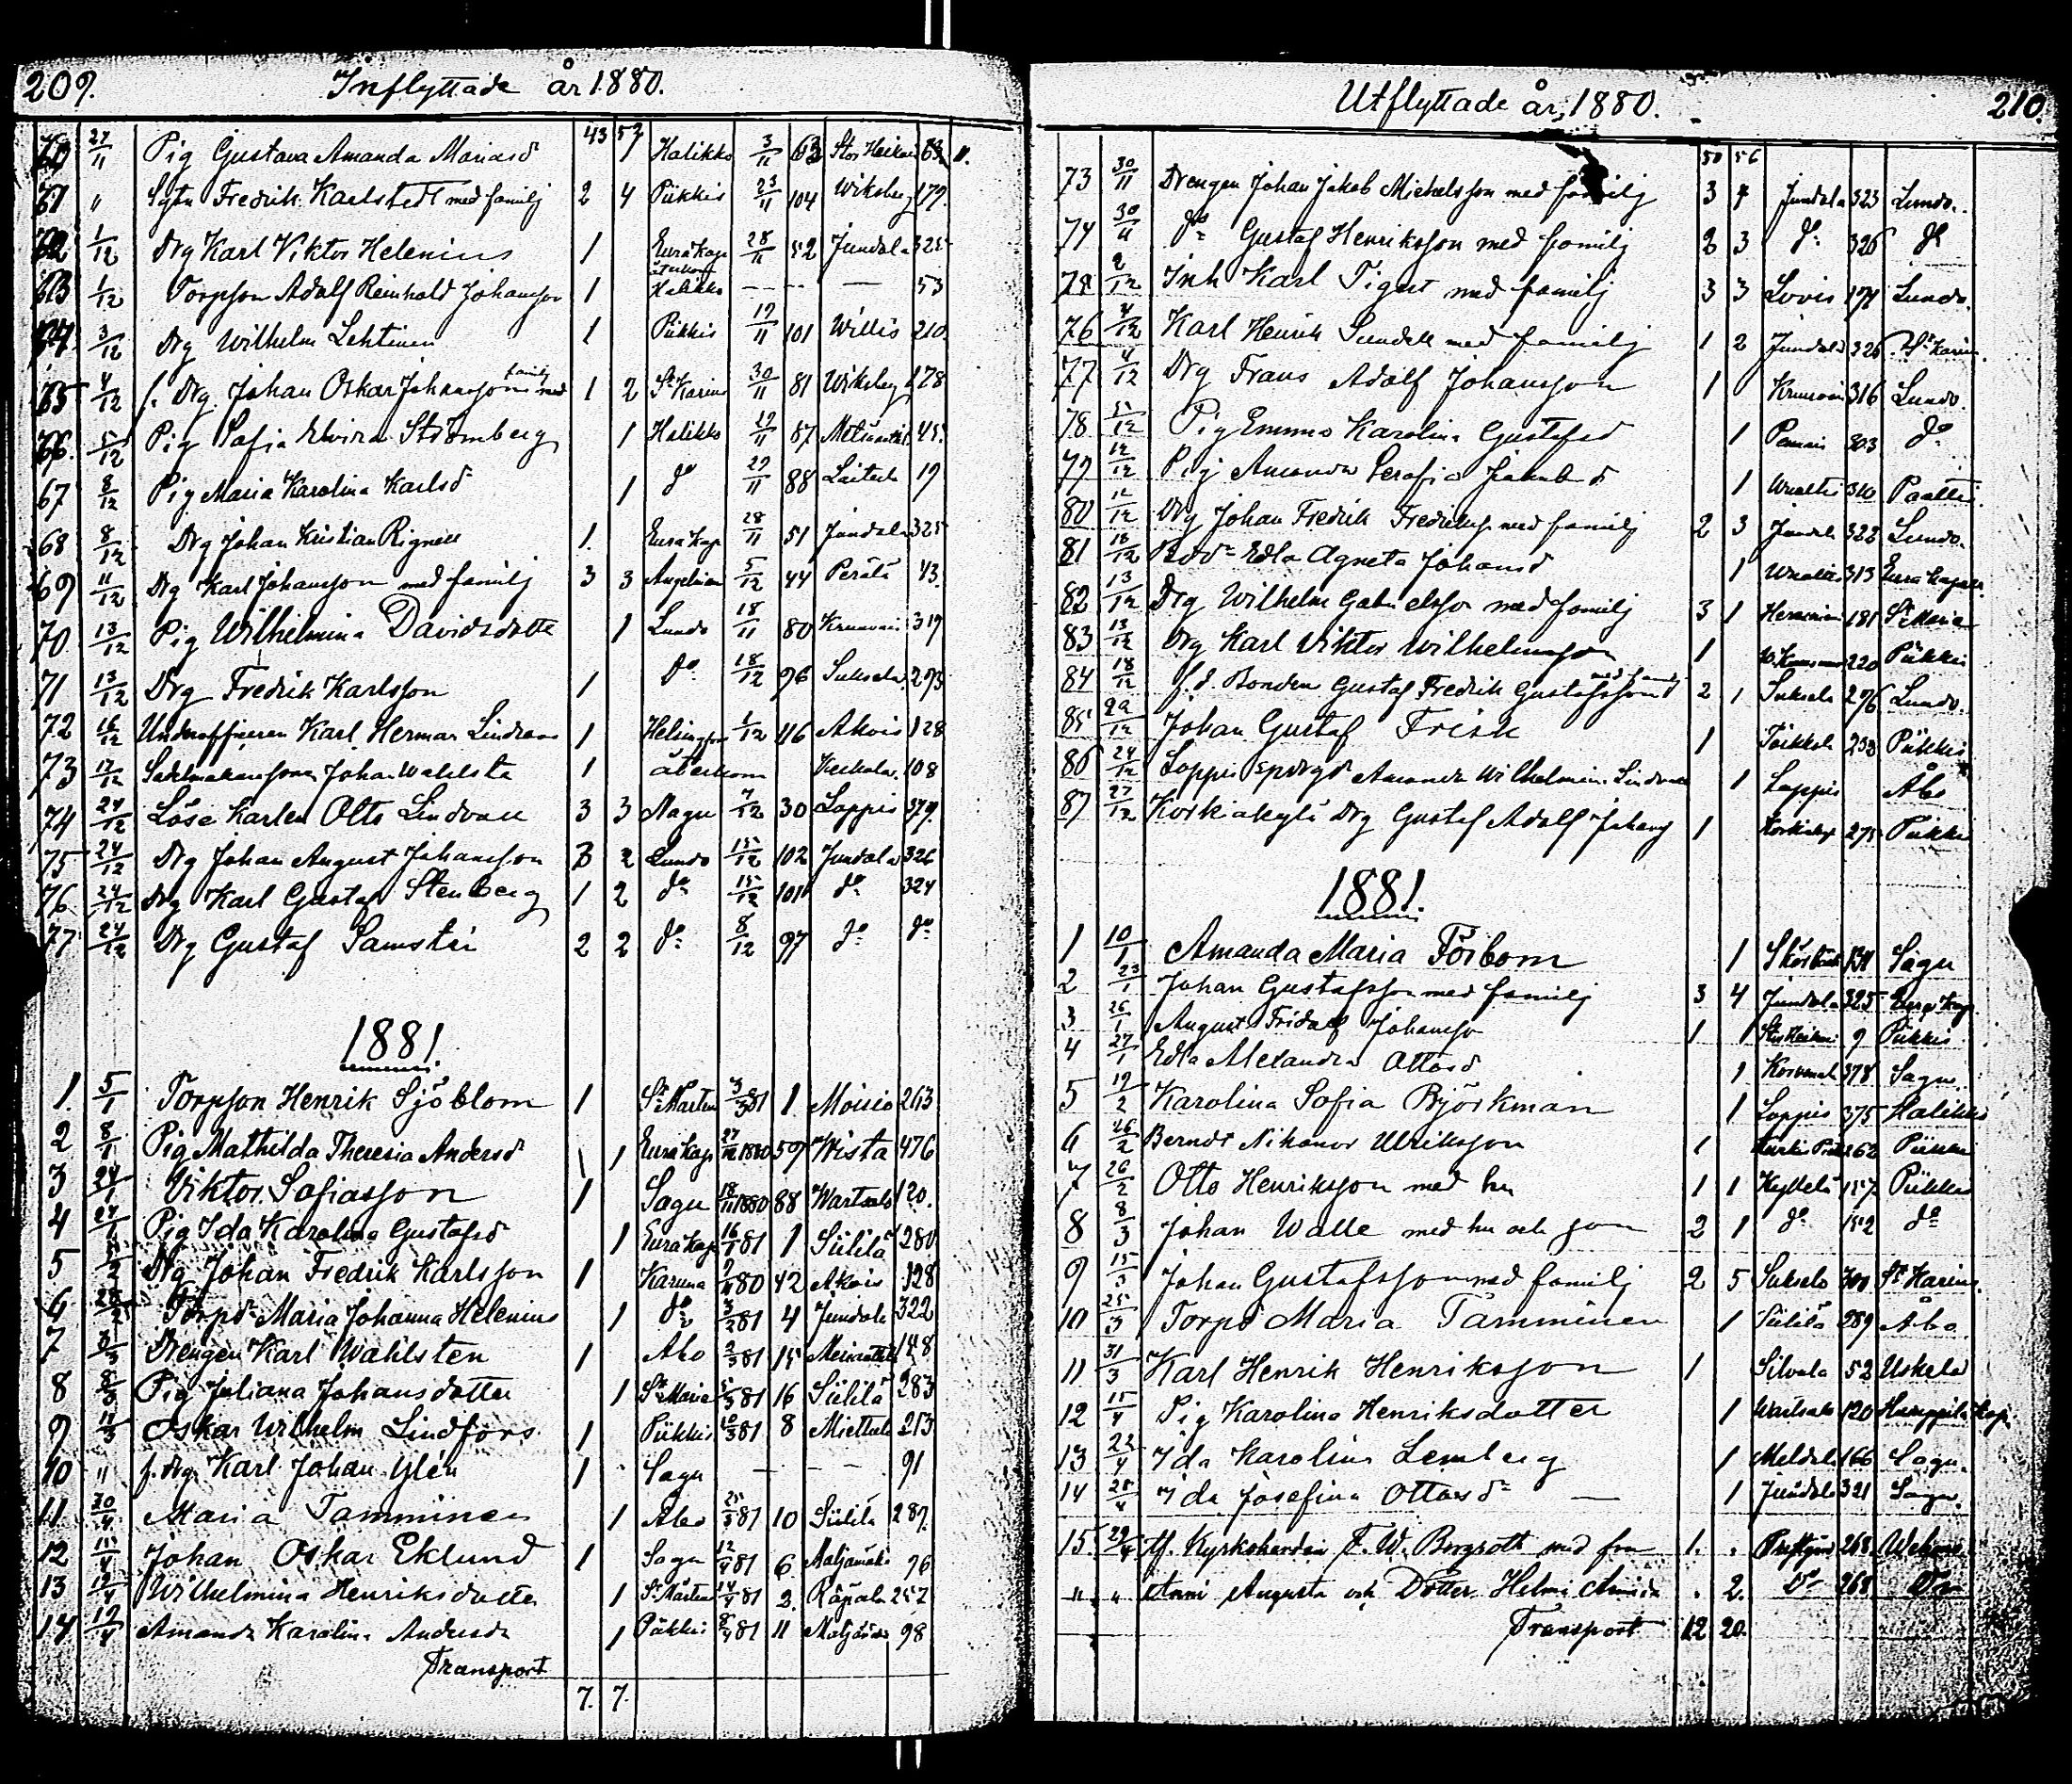 209. Inflyttade år 1880.
43 57
60 27/11 Pig Gustava Amanda Mariasd 1 Halikko 3/11 Stor Heikois
61 " Sytn Fredrik Karlstedt med familj 2 4 Piikkis 23/11 104 Wiksberg 179.
62 1/12 Drg Karl Viktor Helenius 1 Eura Kap 28/11 52 Jundola 325
63 1/12 Torpson Adolf Reinhold Johansson 1 Halikko — — 53
64. 3/12 Drg Wilhelm Lehtinen 1 Piikkis 19/11 101 Willis 210.
65 4/12 f. Drg Johan Oskar Johansson med familj 1 2 St Karins 30/11 81 Wiksberg 178
66. 5/12 Pig Sofia Elvira Strömberg 1 Halikko 19/11 87 45.
67 8/12 Pig Maria Karolina Karlsd 1 do 29/11 88 19
68 8/12 Drg Johan Kristian Rignell 1. Eura Kap 28/11 51 Jundola 325
69 11/12 Drg Karl Johansson med familj 3 3 Angelniemi 5/12 44 Perälä 43.
70 13/12 Pig Wilhelmina Davidsdotte 1 Lundo 18/11 80 319
71 13/12 Drg Fredrik Karlsson 1 do 18/12 96 Suksela 293
72 16/12 Underofficeren Karl Herman Lindroos 1 Helsingfors 1/12 116 Akois 128
73 17/12 Sadelmakaresonen Johan Wahlste 1 återkom 108
74 24/12 Löse Karlen Otto Lindvall 3 3 Nagu 7/12 30 Loppis 379.
75 24/12 Drg Johan August Johansson 3 2 Lundo 15/12 102 Jundola 326
76 24/12 Drg Karl Gustaf Stenberg 1 2 do 15/12 101 do 324
77 24/12 Drg Gustaf Samstén 2 2 do 8/12 97 do do
1881.
1. 5/1 Torpson Henrik Sjöblom 1 St Marten 81 1. Moisio 263
2 8/1 Pig Mathilda Theresia Andersd 1 Eura Kap 27/12 1880 59 Wista 476
3 24/1 Viktor Sofiasson 1 Sagu 18/11 1880 88 Wartsalo 120.
4 27/1 Pig Ida Karolina Gustafsd 1 Eura Kap 16/1 81 1 Siililä 280
5 Drg Johan Fredrik Karlsson 1 Karuna 80 42 Akois 128
6 28/2 Torpd Maria Johanna Helenius 1 do 3/2 81 4 Jundola 322
7 3/3 Drengen Karl Wahlsten 1 Åbo 2/3 81 15 148
8 8/3 Pig Juliana Johansdotter 1 St Maria 5/3 81 16 Siililä 283
9 Oskar Wilhelm Lindfors 1 Piikkis 10/3 81 8 Miettula 213
10 " f. drg Karl Johan Glén 1 Sagu — — — 91
11 30/4 Maria Tamminen 1 Åbo 25/3 81 10 Siililä 289.
12 15/4 Johan Oskar Eklund 1 Sagu 12/4 81 6 96
13 19/4 Wilhelmina Henriksdotter 1 St Mårten 14/4 81 2. Räpälä 257
14 19/4 Amanda Karolina Andersd 1 Piikkis 8/4 81 11 98
Transport
7. 7.
Utflyttade år 1880. 210.
50 56
73 30/11 Drengen Johan Jakob Michelsson med familj 3 4 Jundola 323 Lundo.
74 30/11 do Gustaf Henriksson med familj 2 3 do 326 do
75 2/12 Inh Karl Tigert med familj 3 3 Lovis 197 Lundo.
76 4/12 Karl Henrik Sundell med familj 1 2 Jundola 326. St Karins.
77 4/12 Drg Frans Adolf Johansson 1 316 Lundo.
78 11/12 Pig Emma Karolina Gustafsd 1 Pemais 303 do
79 12/12 Pig Amanda Serafia Jakobsd 1 310 Paattis
80 12/12 Drg Johan Fredrik Fredriksson med familj 2 3 Jundola 322 Lundo.
81 13/12 Bdr Edla Agneta Johansd 1 313 Eura Kapell.
82 13/12 Drg Wilhelm Gabrielsson med familj 3 1 181 St Maria
83 13/12 Drg Karl Viktor Wilhelmsson 1 220 Piikkis
84 18/12 f.d. Bonden Gustaf Fredrik Gustafsson med familj 2 1 Suksela 296 Lundo.
85 22/12 Johan Gustaf Frisk 1 Toikkola 233 Piikkis
86 24/12 Loppis Amanda Wilhelmina Lindvall 1 Loppis Åbo
87 27/12 Korkiakylä Drg Gustaf Adolf Johans 1 275 Piikkis
1881.
1 10/1 Amanda Maria Forbom 1 131 Sagu
2 23/1 Johan Gustafsson med familj 3 4 Jundola 325 Eura Kap.
3 26/1 August Fridolf Johansso 1 9 Piikkis
4 27/1 Edla Alexandra Ottosd 1 378 Sagu.
5 19/2 Karolina Sofia Björkman 1 Loppis 375 Halikko
6 26/2 Berndt Nikanor Ulriksson 1 262 Piikkis
7 26/2 Otto Henriksson med hu 1 1 Kyllelä 157 Piikkis
8 8/3 Johan Walle med hu och son 2 1 do 152 do
9 15/3 Johan Gustafsson med familj 2 5 Suksela 300 St Karins.
10 25/3 Torpd Maria Tamminen 1 Siililä 289 Åbo
11 31/3 Karl Henrik Henriksson 1 Silvola 52 Uskela
12 15/4 Pig Karolina Henriksdotter 1 Wartsalo 120 Kap.
13 22/4 Ida Karolina Lemberg 1 Meldola 166 Sagu.
14 25/4 Ida Josefina Ottosd — 1 Jundola 321 Sagu.
15. 29/4 tf. Kyrkoherden F. W. Borgroth med fru 1. . 268 Wehmo
" " Anni Augusta och Dotter Helmi Amida . 2. Do 268 Do
Transport 12 20.